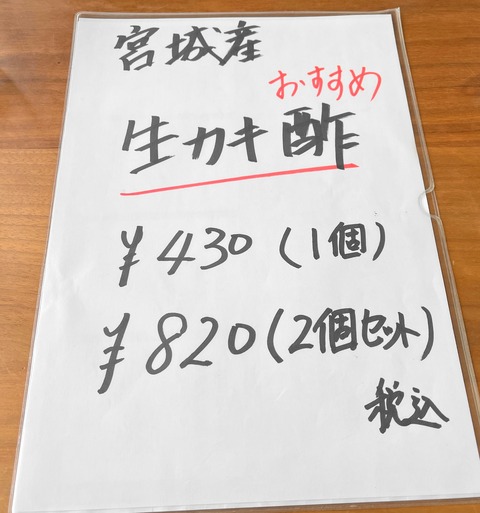 宮城産
おすすめ
生カキ酢
¥430(1個)
¥820(2個セット)
税込